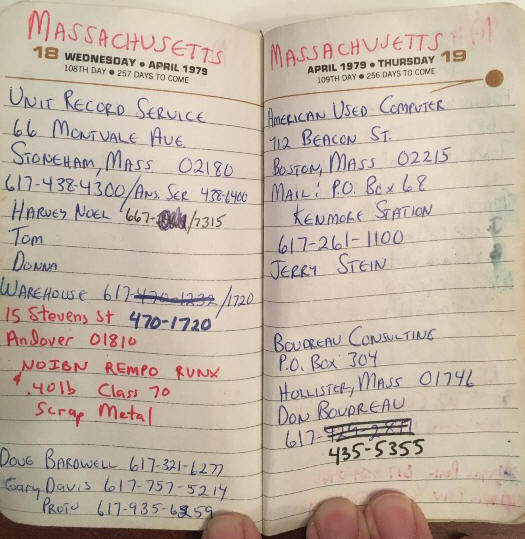 MASSACHUSETTS
18 WEDNESDAY • APRIL 1979
108TH DAY • 257 DAYS TO COME
UNIT RECORD SERVICE
66 MONTVALE AVE
STONEHAM, MASS 02180
617-438-4300/ANS. SER 438-6400
HARVEY NOEL 667-/7315
TOM
DONNA
WAREHOUSE 617-470-1232/1720
15 Stevens St 470-1720
Andover 01810
NOIBN REMPO RUNX
.40lb Class 70
Scrap Metal
DOUG BARDWELL 617-321-6277
Gary Davis 617-757-5214
PROTO 617-935-6259
MASSACHUSETTS
APRIL 1979 • THURSDAY 19
109TH DAY • 256 DAYS TO COME
AMERICAN USED COMPUTER
712 BEACON ST.
BOSTON, MASS 02215
MAIL: P.O. BOX 68
KENMORE STATION
617-261-1100
JERRY STEIN
BOUDREAU CONSULTING
P.O. BOX 304
HOLLISTER, MASS 01746
DON BOUDREAU
617-
435-5355